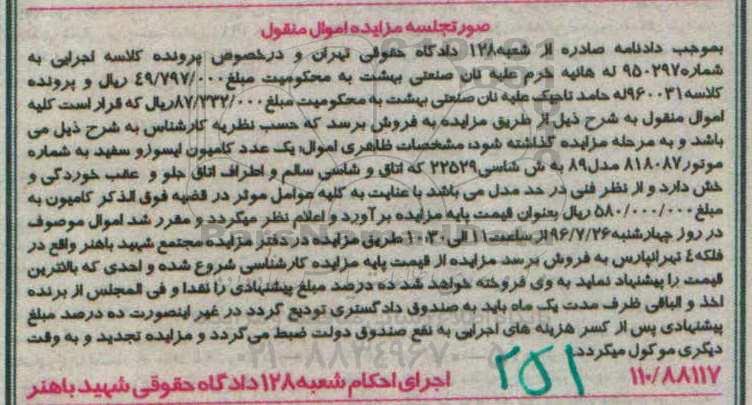 صورتجلسه مزایده اموال منقول
بموجب دادنامه صادره از شعبه۱۲۸ دادگاه حقوقی تهران و درخصوص پرونده کلاسه اجرایی به
شماره۹۵۰۲۹۷ له هانیه خرم علیه نان صنعتی بهشت به محکومیت مبلغ۴۹/۷۹۷/۰۰۰ ریال و پرونده
کلاسه۹۶۰۰۳۱له حامد تاجیک علیه نان صنعتی بهشت به محکومیت مبلغ۸۷/۳۳۲/۰۰۰ریال که قرار است کلیه
اموال منقول به شرح ذیل از طریق مزایده به فروش برسد که حسب نظریه کارشناس به شرح ذیل می
باشد و به مرحله مزایده گذاشته شود: مشخصات ظاهری اموال: یک عدد کامیون ایسوزو سفید به شماره
موتور۸۱۸۰۸۷ مدل۸۹ به ش شاسی۲۲۵۲۹ که اتاق و شاسی سالم و اطراف اتاق جلو و عقب خوردگی و
خش دارد و از نظر فنی در حد مدل می باشد با عنایت به کلیه عوامل موثر در قضیه فوق الذکر کامیون به
مبلغ۵۸۰/۰۰۰/۰۰۰ ریال بعنوان قیمت پایه مزایده برآورد و اعلام نظر میگردد و مقرر شد اموال موصوف
در روز چهارشنبه۹۶/۷/۲۶از ساعت۱۱ الی۱۰:۳۰ طریق مزایده در دفتر مزایده مجتمع شهید باهنر واقع در
فلکه٤ تهرانپارس به فروش برسد مزایده از قیمت پایه مزایده کارشناسی شروع شده و احدی که بالاترین
قیمت را پیشنهاد نماید به وی فروخته خواهد شد ده درصد مبلغ پیشنهادی را نقدا و فی المجلس از برنده
اخذ و الباقی ظرف مدت یک ماه باید به صندوق دادگستری تودیع گردد در غیر اینصورت ده درصد مبلغ
پیشنهادی پس از کسر هزینه های اجرایی به نفع صندوق دولت ضبط می گردد و مزایده تجدید و به وقت
دیگری موکول میگردد.
۱۱۰/۸۸۱۱۷
۲۵۱
اجرای احکام شعبه۱۲۸ دادگاه حقوقی شهید باهنر
ParsNamadData
۰۲۱-۸۸۳۴۹۶۷۰-۵